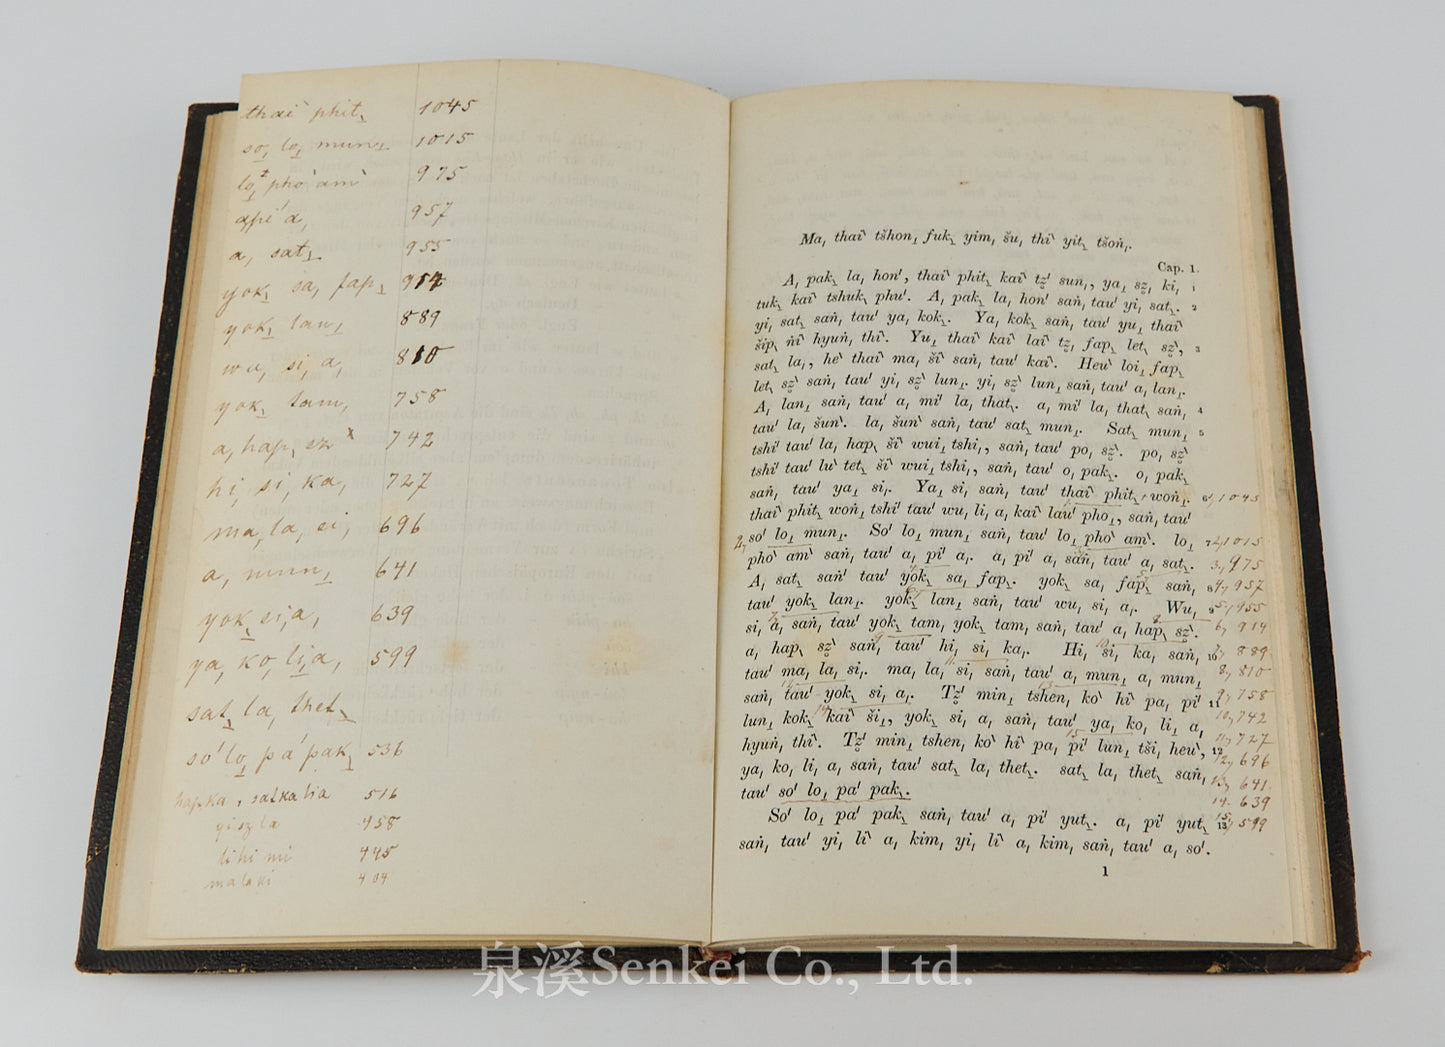 thai` phit˰ 1045
so, lo, mun 1015
lo, pho` am` 975
api' a, 957
a, sat 955
yok, sa, fap, 914
yok, lan, 889
wu, si, a, 810
yok, tam, 758
a, hap, sz` 742
hi, si, ka, 727
ma, la, si, 696
a, mun 641
yok, si, a, 639
ya, ko, li, a, 599
sat, la, thet,
so' lo, pa' pak, 536
hapka, satkatia 516
yiszla 458
lihimi 445
malaki 404
Ma, thai` tšhon, fuk, yim, šu, thi` yit, tšoṅ,.
Cap. 1.
A, pak, la, hon', thai` phit, kai` tz̥' sun,, ya, sz̥, ki, 1
tuk, kai` tshuk, phu'. A, pak, la, hon' saṅ, tau' yi, sat,. 2
yi, sat, saṅ, tau' ya, kok,. Ya, kok, saṅ, tau' yu, thai`
šip, ṅi` hyuṅ, thi`. Yu, thai` kai` lai` tz̥, fap, let, sz̥`, 3
sat, la,, he` thai` ma, ši` saṅ, tau' kai`. Heu` loi, fap,
let, sz̥` saṅ, tau' yi, sz̥` lun,. yi, sz̥` lun, saṅ, tau' a, lan,.
A, lan, saṅ, tau' a, mi' la, that,. a, mi' la, that, saṅ, 4
tau' la, šun'. la, šun' saṅ, tau' sat, mun,. Sat, mun, 5
tshi' tau' la, hap, ši` wui, tshi,, saṅ, tau' po, sz̥`. po, sz̥`
tshi' tau' lu` tet, ši` wui, tshi,, saṅ, tau' o, pak,. o, pak,
saṅ, tau' ya, si,. Ya, si, saṅ, tau' thai` phit, woṅ,. 6 1, 1045
thai` phit, woṅ, tshi' tau' wu, li, a, kai` lau' pho,, saṅ, tau'
2, so' lo, mun,. So' lo, mun, saṅ, tau' lo, pho` am`. lo, 7 2, 1015
pho` am` saṅ, tau' a, pi' a,. a, pi' a, saṅ, tau' a, sat,. 3, 975
A, sat, saṅ' tau' yok, sa, fap,. yok, sa, fap, saṅ, 8 4, 957
tau' yok, lan,. yok, lan, saṅ, tau' wu, si, a,. Wu, 9 5, 955
si, a, saṅ, tau' yok, tam, yok, tam, saṅ, tau' a, hap, sz̥`. 6, 914
a, hap, sz̥` saṅ, tau' hi, si, ka,. Hi, si, ka, saṅ, 10 7, 889
tau' ma, la, si,. ma, la, si, saṅ, tau' a, mun, a, mun, 8, 810
saṅ, tau' yok, si, a,. Tz̥' min, tshen, ko` hi` pa, pi' 11 9, 758
lun, kok, kai` ši,, yok, si, a, saṅ, tau' ya, ko, li, a, 10, 742
hyuṅ, thi`. Tz̥' min, tshen, ko` hi` pa, pi' lun, tši, heu`, 12 11, 727
ya, ko, li, a, saṅ, tau' sat, la, thet,. sat, la, thet, saṅ, 12, 696
tau' so' lo, pa' pak,. 13, 641
14. 639
So' lo, pa' pak, saṅ, tau' a, pi' yut,. a, pi' yut, 13 15, 599
saṅ, tau' yi, li` a, kim, yi, li` a, kim, saṅ, tau' a, so'.
1
泉溪Senkei Co., Ltd.